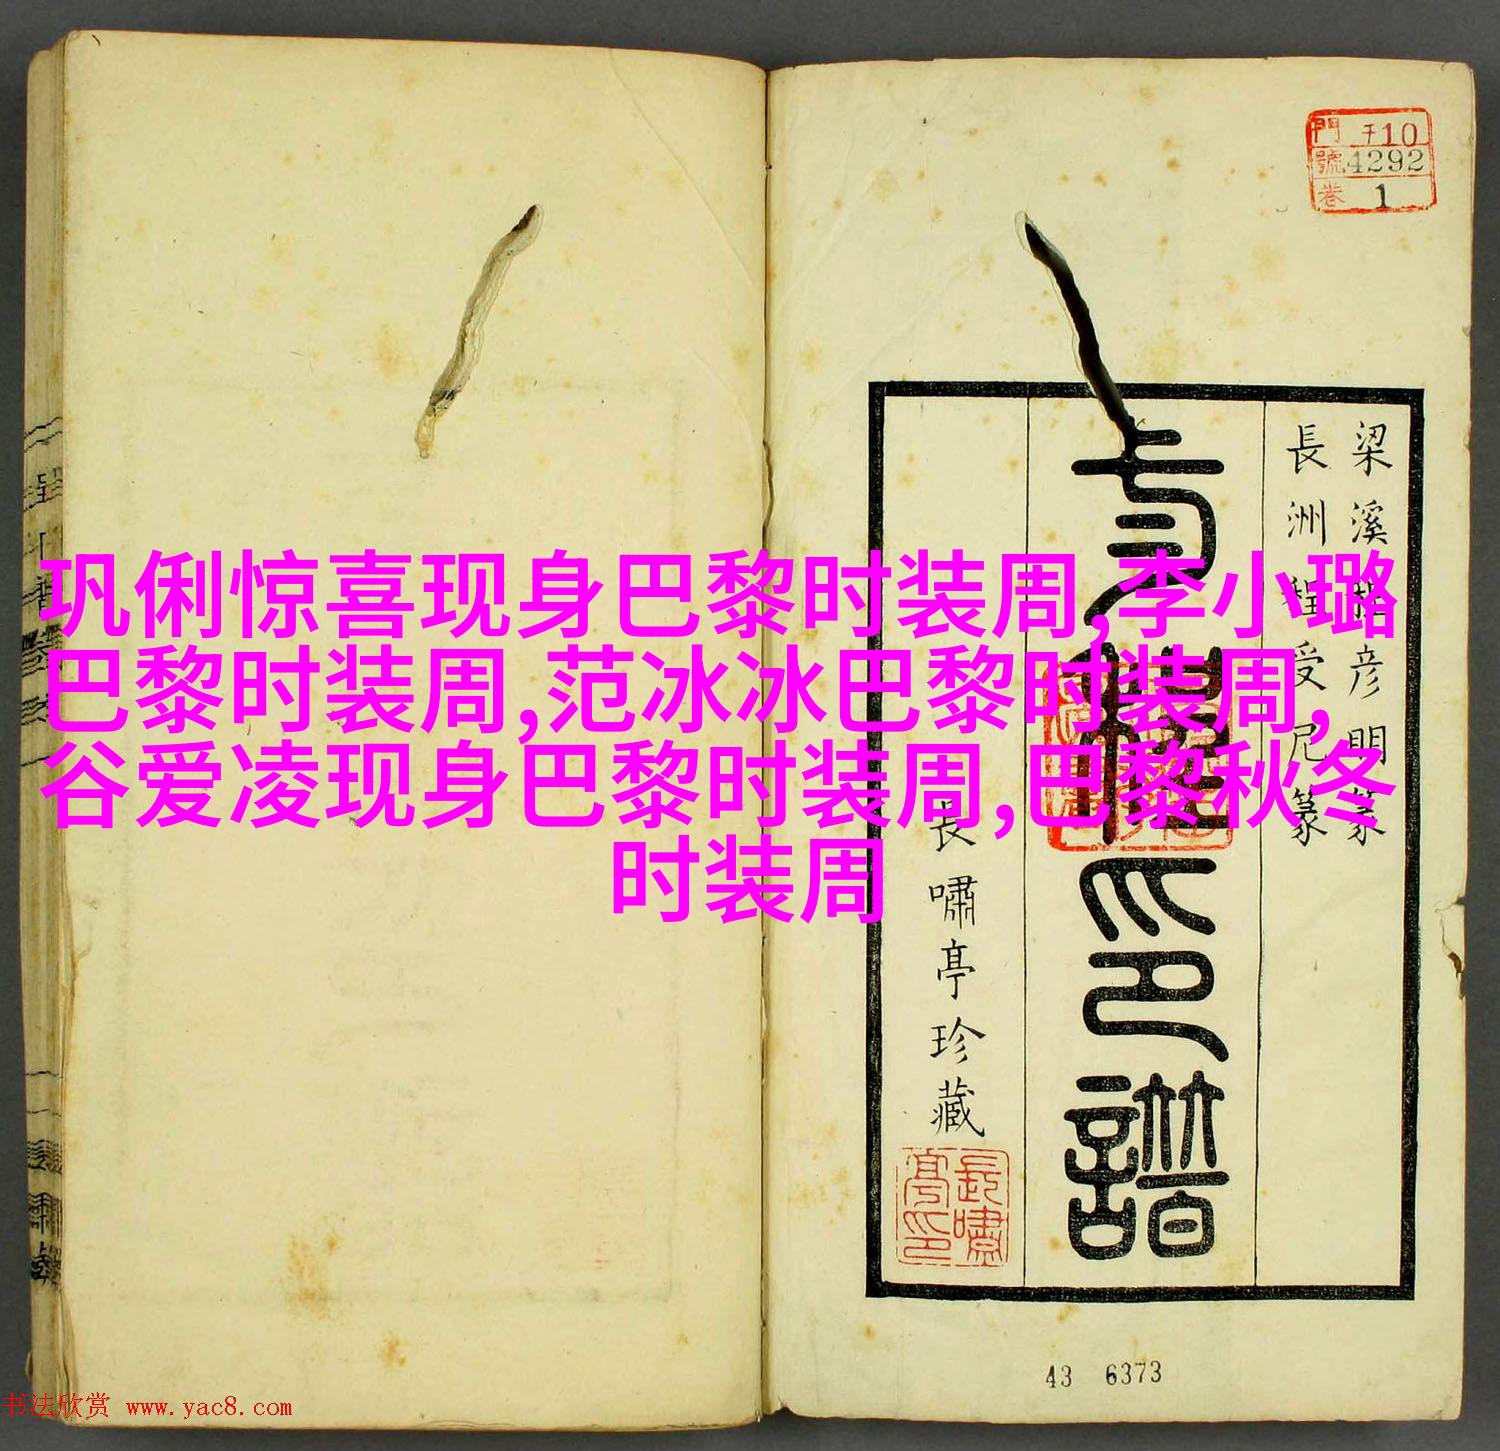 門 子10
號 4292
卷 1
巩俐惊喜现身巴黎时装周,李小璐
巴黎时装周,范冰冰巴黎时装周,
谷爱凌现身巴黎时装周,巴黎秋冬
时装周
梁溪程彦明篆
長洲程受尼篆
印譜
長嘯亭珍藏
長嘯亭印
43 6373
书法欣赏 www.yac8.com